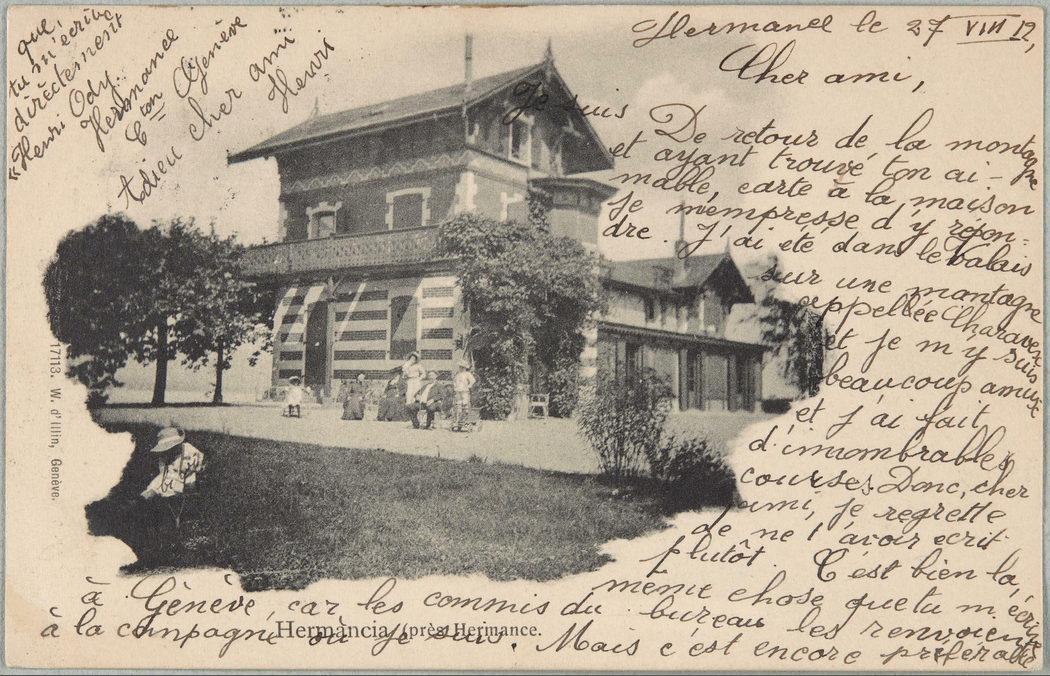 Hermance le 27 VIII 12,
Cher ami,
Je suis
De retour de la montagne
et ayant trouvé ton ai-
mable, carte à la maison
je m'empresse d'y répon-
dre. J'ai été dans le Valais
sur une montagne
appellée Charavex
et je m'y suis
beaucoup amusé
et j'ai fait
d'innombrables
courses. Donc, cher
ami, je regrette
de ne l'avoir écrit
plutôt. C'est bien la
même chose que tu m'écrive
à Genève, car les commis du bureau les renvoient
à la campagne où je suis. Mais c'est encore préférable
que
tu m'écrive
dirèctement
"Henri Ody
Hermance
Cton Genève
Adieu cher ami
Henri
17113. W. d'Illin, Genève.
Hermancia (près Hermance.